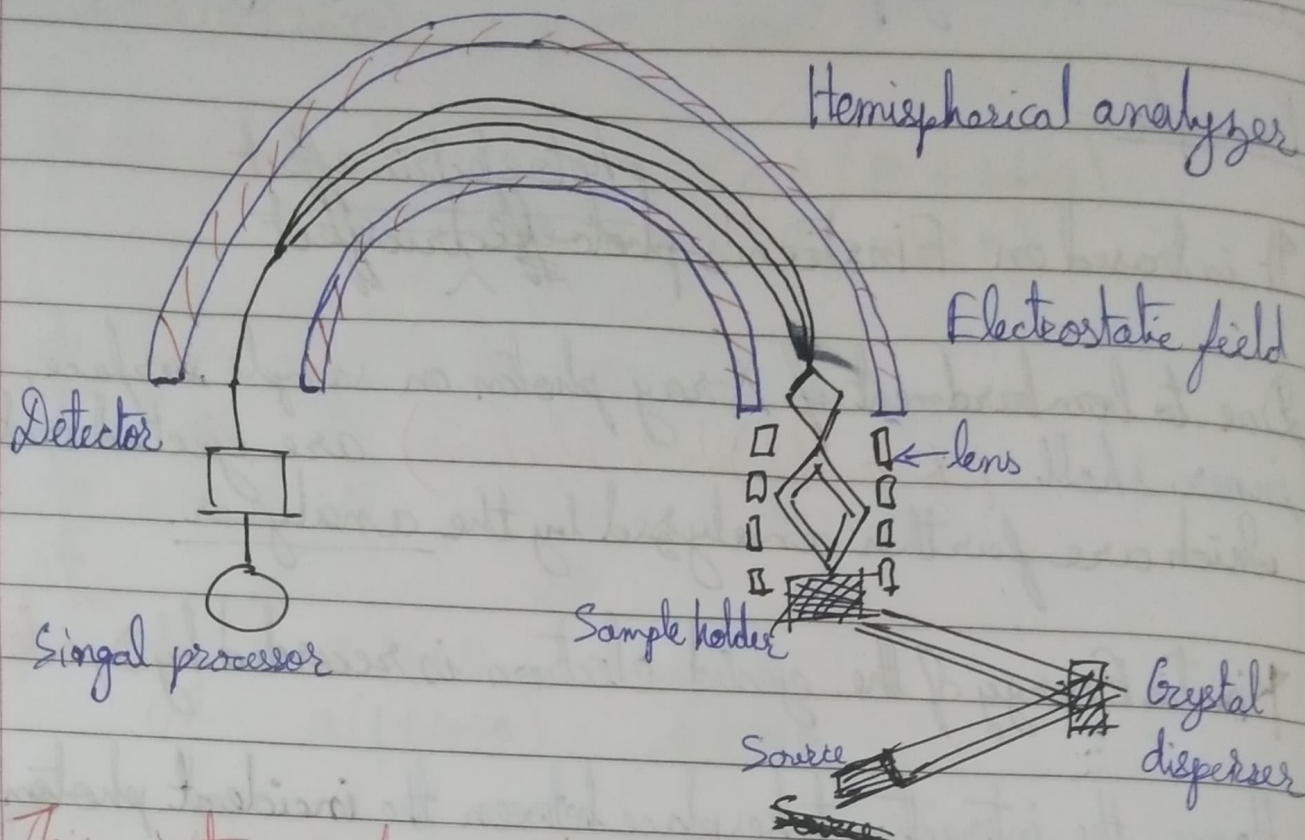 Hemispherical analyzer
Electrostatic field
Detector
lens
Sample holder
Singal processor
Crystal
disperser
Source
Source